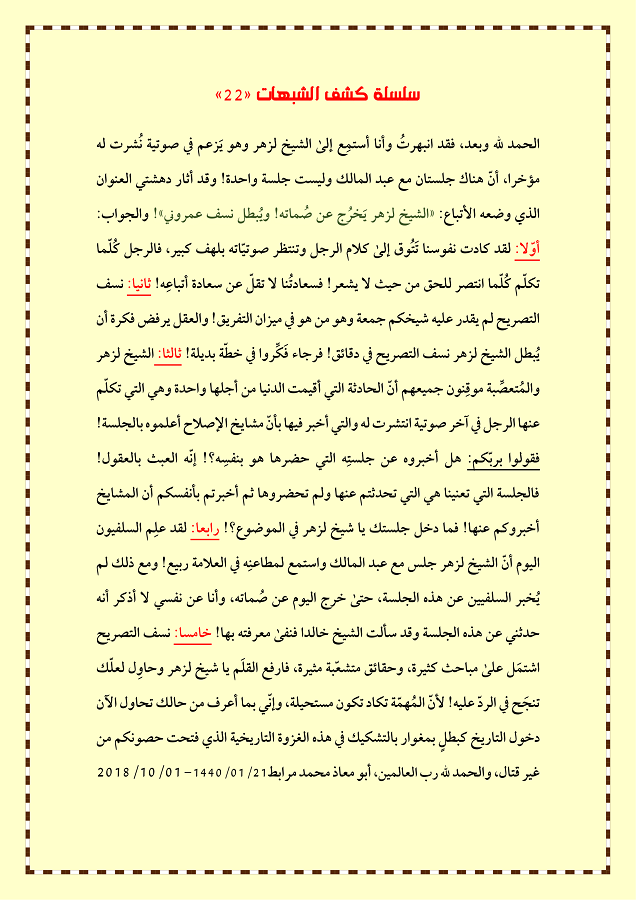 سلسلة كشف الشبهات «22»
الحمد لله وبعد، فقد انبهرتُ وأنا أستمِع إلىٰ الشيخ لزهر وهو يَزعم في صوتية نُشرت له
مؤخرا، أنّ هناك جلستان مع عبد المالك وليست جلسة واحدة! وقد أثار دهشتي العنوان
الذي وضعه الأتباع: «الشيخ لزهر يَخرُج عن صُماته! ويُبطل نسف عمروني»! والجواب:
أوّلا: لقد كادت نفوسنا تَتُوق إلىٰ كلام الرجل وتنتظر صوتيّاته بلهف كبير، فالرجل كُلّما
تكلّم كُلّما انتصر للحق من حيث لا يشعر! فسعادتُنا لا تقلّ عن سعادة أتباعِه! ثانيا: نسف
التصريح لم يقدر عليه شيخكم جمعة وهو من هو في ميزان التفريق! والعقل يرفض فكرة أن
يُبطل الشيخ لزهر نسف التصريح في دقائق! فرجاء فَكِّروا في خطّة بديلة! ثالثا: الشيخ لزهر
والمُتعصِّبة موقِنون جميعهم أنّ الحادثة التي أقيمت الدنيا من أجلها واحدة وهي التي تكلّم
عنها الرجل في آخر صوتية انتشرت له والتي أخبر فيها بأنّ مشايخ الإصلاح أعلموه بالجلسة!
فقولوا بربّكم: هل أخبروه عن جلستِه التي حضرها هو بنفسِه؟! إنّه العبث بالعقول!
فالجلسة التي تعنينا هي التي تحدثتم عنها ولم تحضروها ثم أخبرتم بأنفسكم أن المشايخ
أخبروكم عنها! فما دخل جلستك يا شيخ لزهر في الموضوع؟! رابعا: لقد علِم السلفيون
اليوم أنّ الشيخ لزهر جلس مع عبد المالك واستمع لمطاعنِه في العلامة ربيع! ومع ذلك لم
يُخبر السلفيين عن هذه الجلسة، حتىٰ خرج اليوم عن صُماته، وأنا عن نفسي لا أذكر أنه
حدثني عن هذه الجلسة وقد سألت الشيخ خالدا فنفىٰ معرفته بها! خامسا: نسف التصريح
اشتمَل علىٰ مباحث كثيرة، وحقائق متشعّبة مثيرة، فارفع القلَم يا شيخ لزهر وحاوِل لعلّك
تنجَح في الردّ عليه! لأنّ المُهمّة تكاد تكون مستحيلة، وإنّي بما أعرف من حالك تحاول الآن
دخول التاريخ كبطلٍ بمغوار بالتشكيك في هذه الغزوة التاريخية الذي فتحت حصونكم من
غير قتال، والحمد لله رب العالمين، أبو معاذ محمد مرابط 21/ 01/ 1440–01/ 10/ 2018